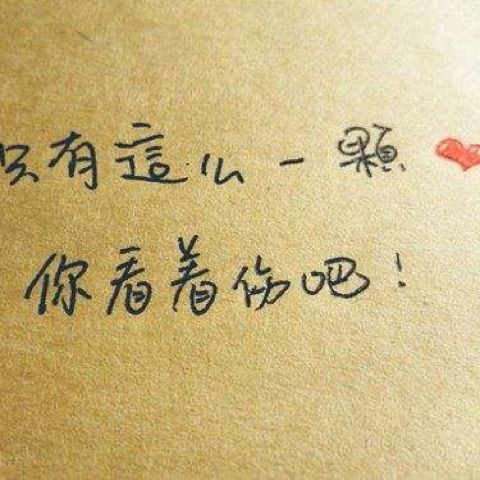 只有這么一顆❤
你看着伤吧!